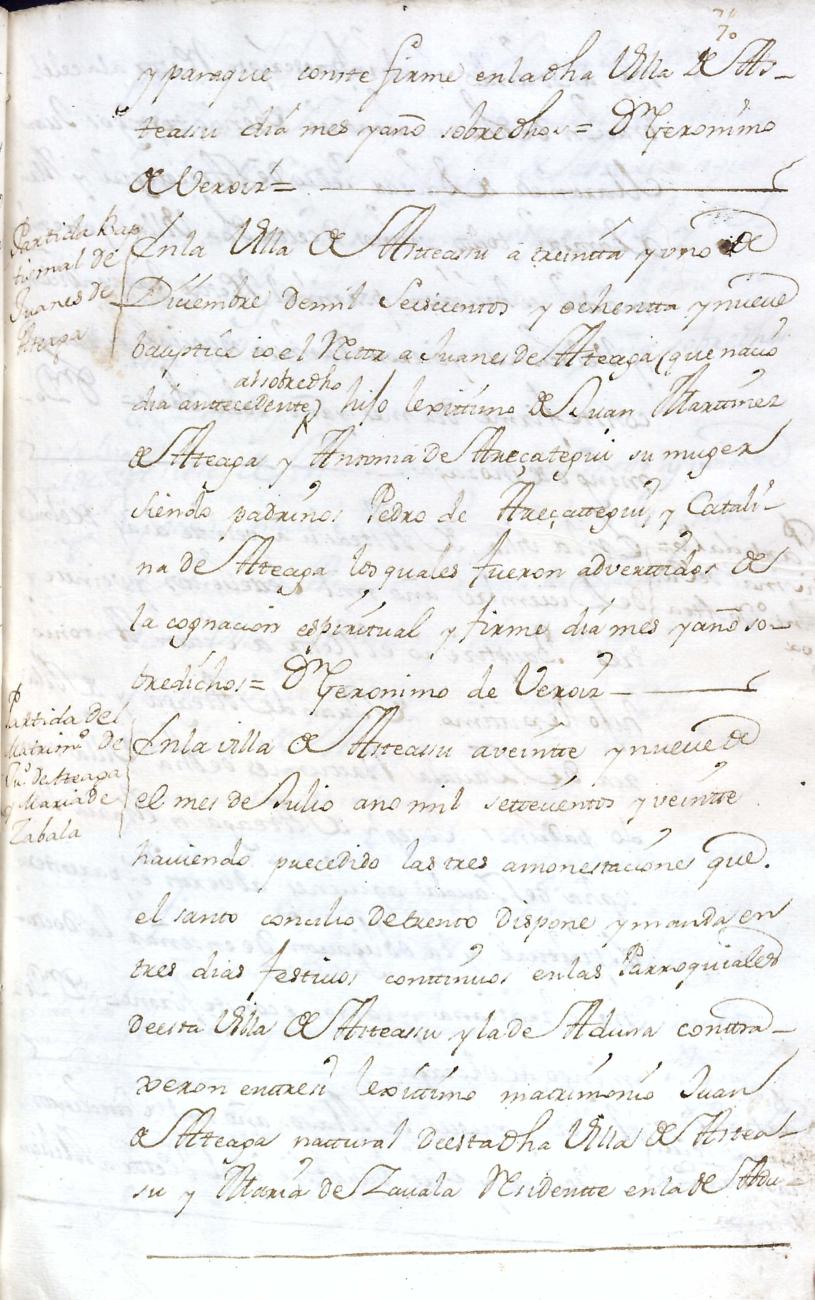 70
y paraque conste firme enladha Villa de As-
teassu dia mes yaño sobredhos = Dn Geronimo
de Veroiz =
Partida Bap
tismal de
Juanes de
Ateaga
Enla Villa de Asteassu a treintta y uno de
Diciembre demil Seiscientos y ochentta y nueve
bauptice io el Rettr a Juanes de Atteaga (que nacio
al sobredho
dia anttecedente) hijo lexittimo de Juan Martinez
de Atteaga y Antonia de Areçategui su muger
siendo padrinos Pedro de Areçattegui, y Catali-
na de Atteaga los quales fueron adverttidos de
la cognacion espiritual y firme, dia mes yaño so-
bredichos = Dn Geronimo de Veroiz
Partida del
Matrimo de
Juo de Ateaga
y Maria de
Zabala
Enla villa de Asteassu aveintte y nueve de
el mes de Julio ano mil settecientos y veintte
haviendo precedido las tres amonestaciones que
el santo concilio de trento dispone y manda en
tres dias festivos conttinuos en las Parroquiales
deesta Villa de Asteassu y la de Aduna conttra-
xeron enttresi lexittimo matrimonio Juan
de Atteaga nattural deesta dha Villa de Astea-
su y Maria de Zavala Residentte en la de Adu-